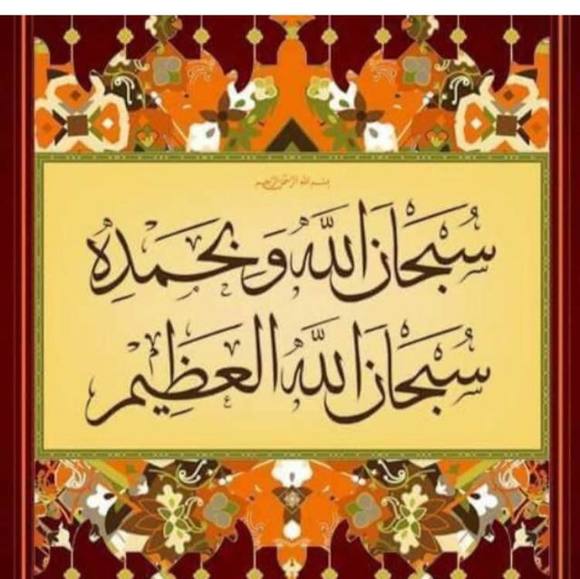 بسم الله الرحمن الرحيم
سُبْحَانَ اللَّهِ وَبِحَمْدِهِ
سُبْحَانَ اللَّهِ الْعَظِيمِ